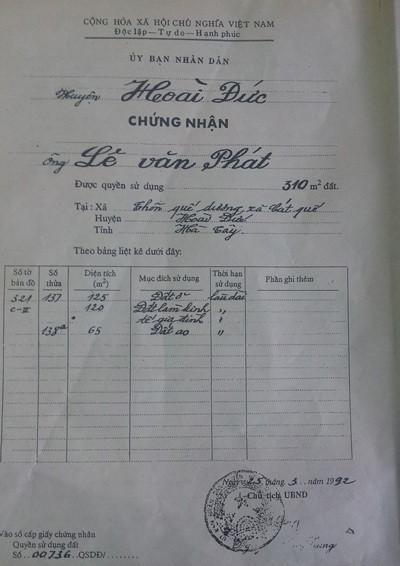 CỘNG HÒA XÃ HỘI CHỦ NGHĨA VIỆT NAM
Độc lập—Tự do—Hạnh phúc
ỦY BAN NHÂN DÂN
Huyện Hoài Đức
CHỨNG NHẬN
Ông Lê văn Phát
Được quyền sử dụng 310 m² đất.
Tại : Xã Thôn quế dương xã Cát quế
Huyện Hoài Đức
Tỉnh Hà Tây
Theo bảng liệt kê dưới đây:
Số tờ bản đồ Số thửa Diện tích (m²) Mục đích sử dụng Thời hạn sử dụng Phần ghi thêm
321 137 125 Đất ở lâu dài
C-II 120 Đất làm kinh "
tế gia đình "
138a 65 Đất ao "
Ngày 25 tháng 3 năm 1992
Chủ tịch UBND
Vào sổ cấp giấy chứng nhận
Quyền sử dụng đất
Số 00736 QSDĐ/